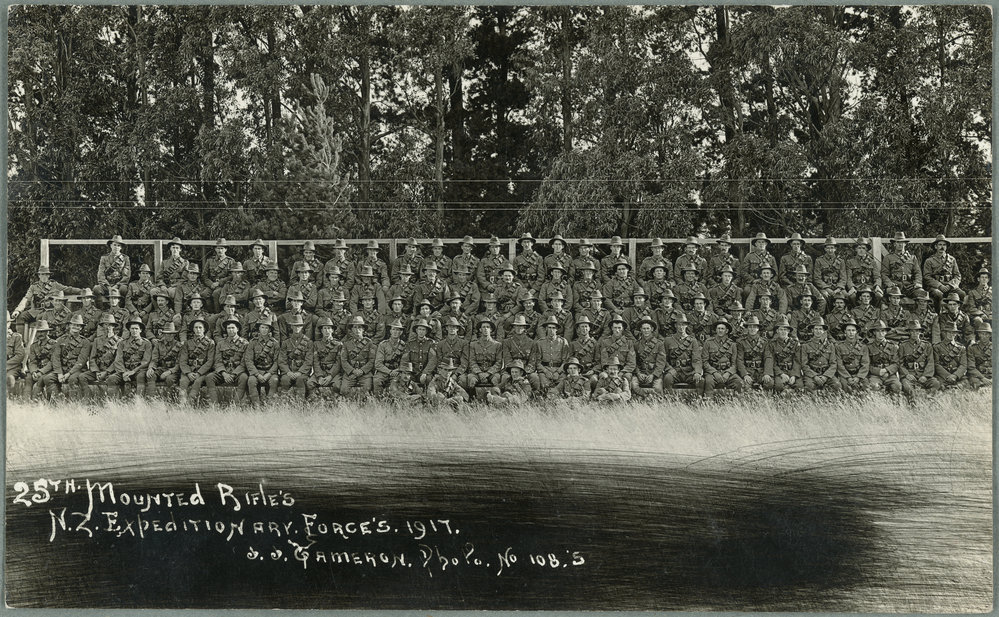 25TH. MOUNTED RIFLE'S
N.Z. EXPEDITIONARY. FORCE'S. 1917.
J. J. CAMERON. Photo. No 108.'S